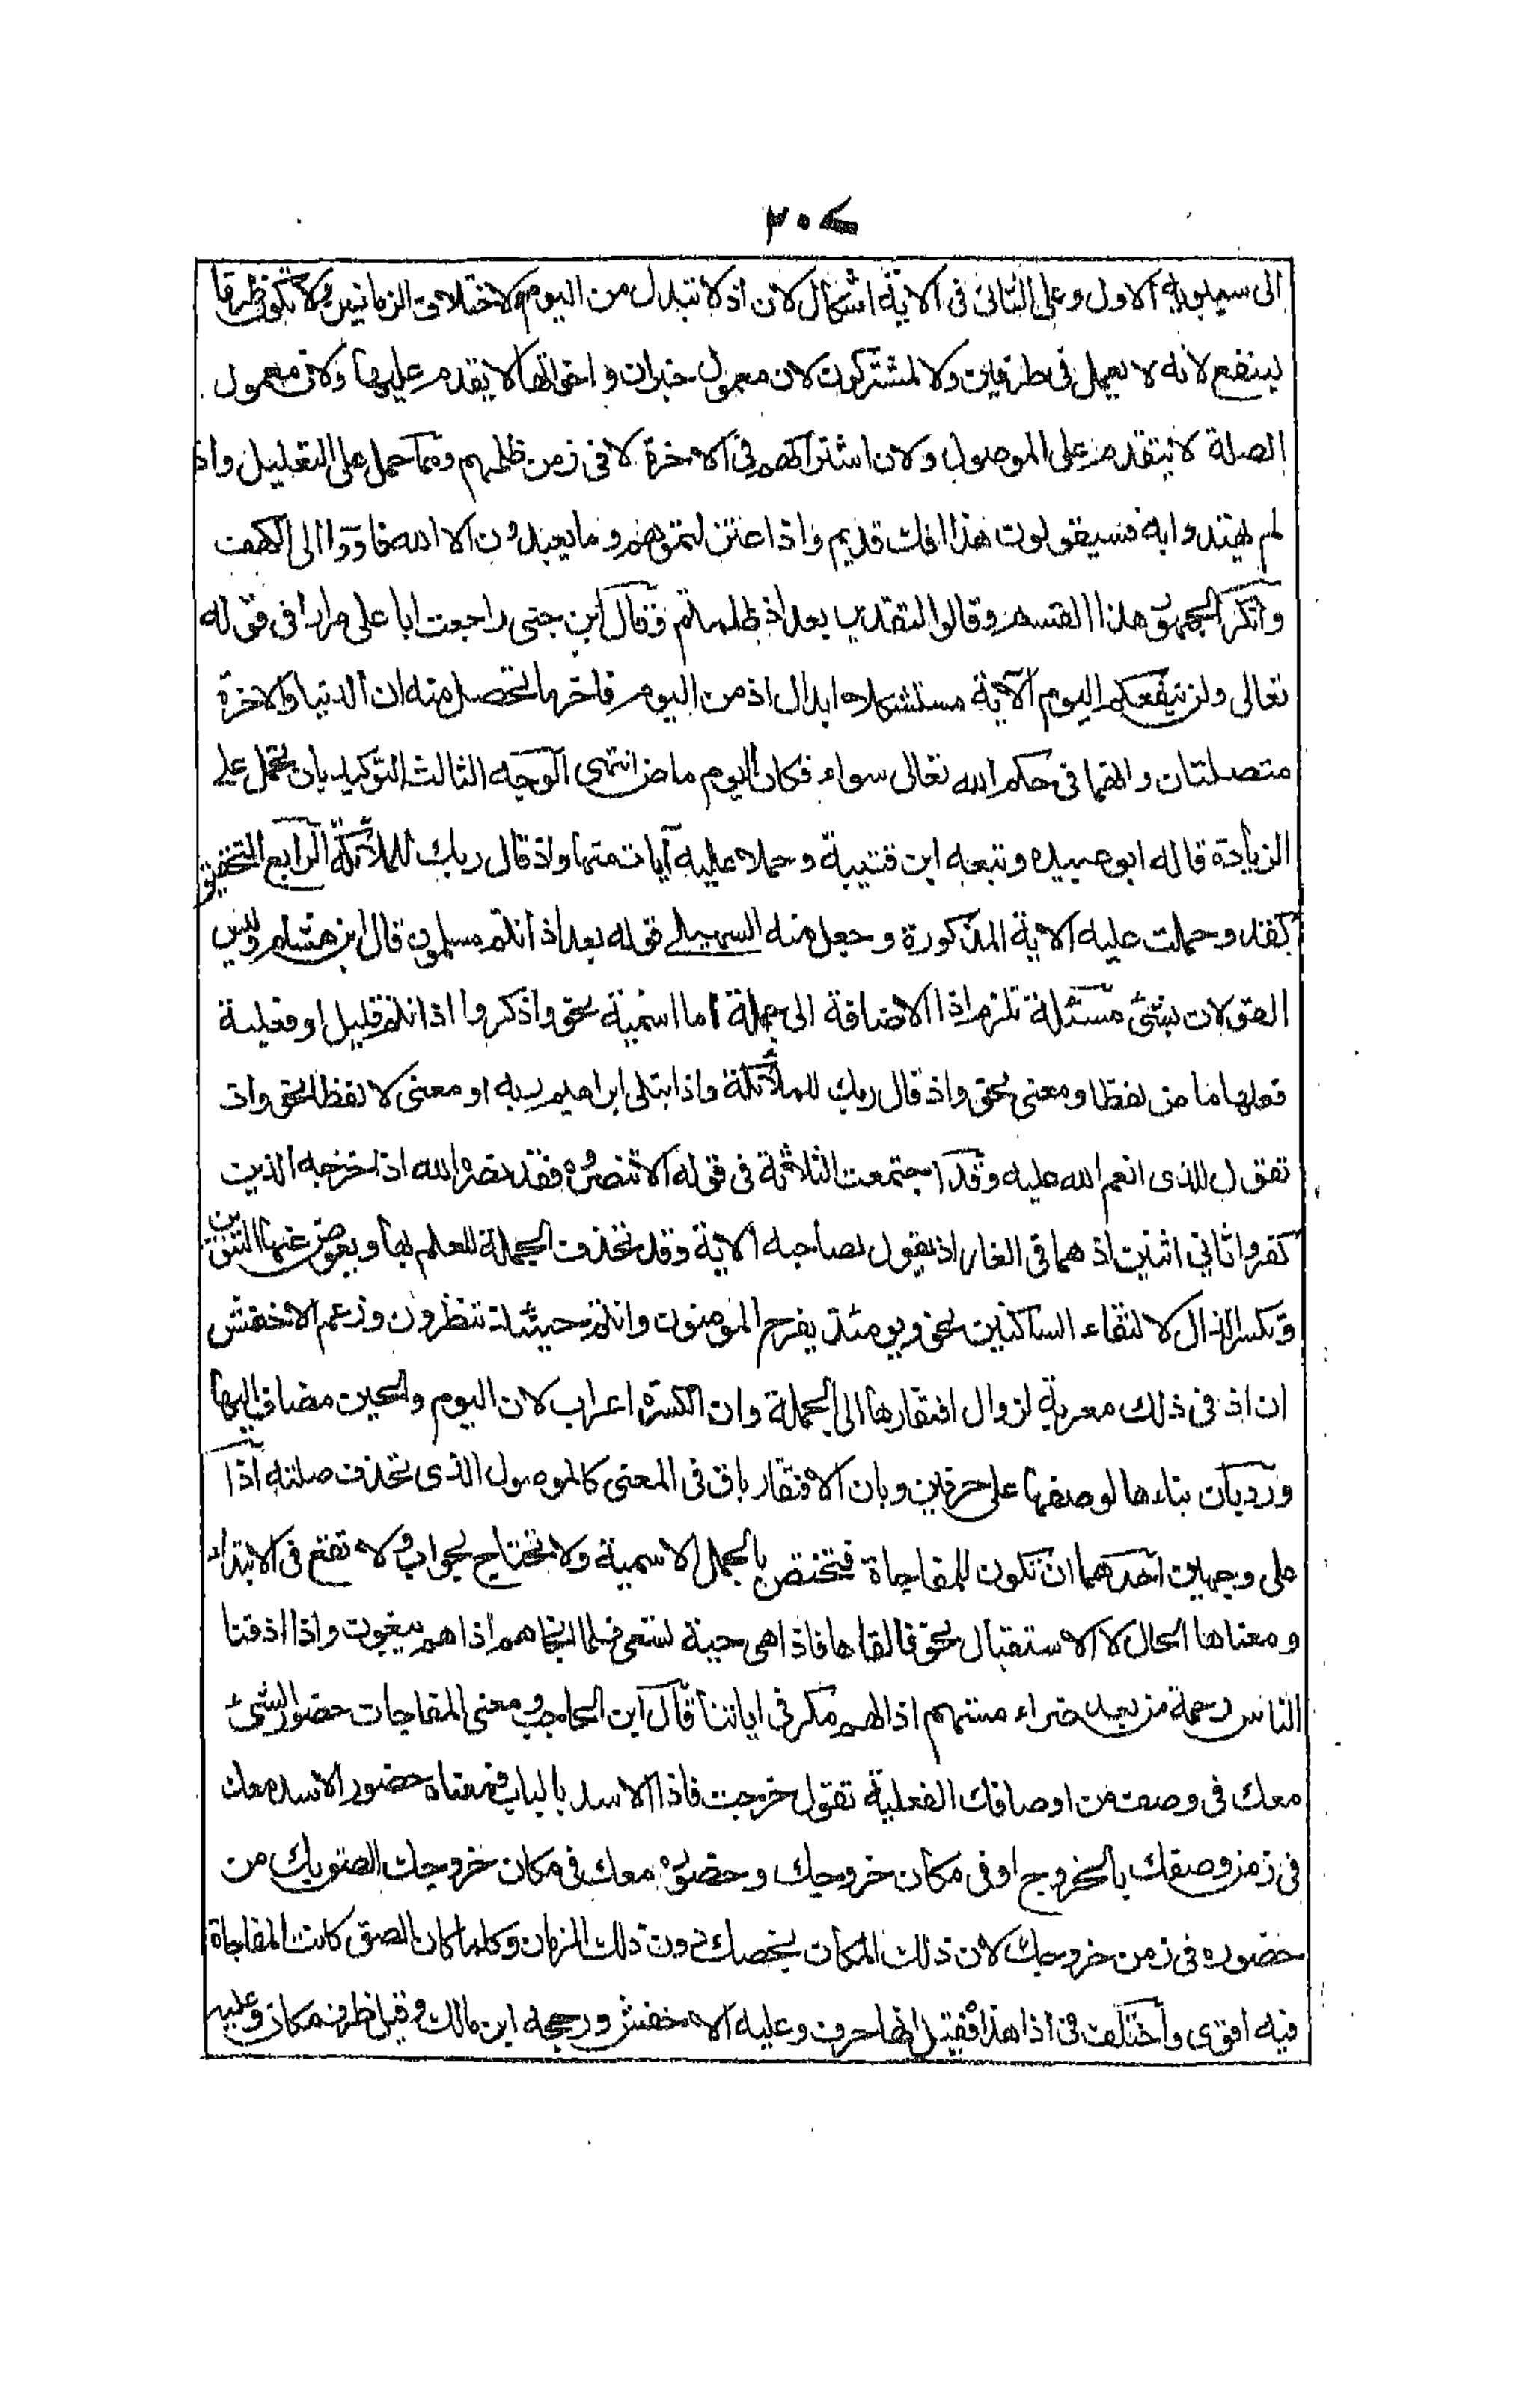 ٣٠٧
الى سيبويه الاول وعلى الثانى فى الاية اشكال لان اذ لا تبدل من اليوم لاختلاف الزمانين ولا تكون ظرفا
لينفع لانه لا يعمل فى ظرفين ولا لمشتركون لان معمول خبران واخواتها لا يتقدم عليها ولان معمول
الصلة لا يتقدم على الموصول ولان اشتراكهم فى الاخرة لا فى زمن ظلمهم ومما حمل على التعليل واذ
لم يهتدوا به فسيقولون هذا افك قديم واذ اعتزلتموهم وما يعبدون الا الله فاووا الى الكهف
وانكر الجمهور هذا القسم وقالوا التقدير بعد اذ ظلمتم وقال ابن جنى راجعت ابا على مرارا فى قوله
تعالى ولن ينفعكم اليوم الآية مستشكلا ابدال اذ من اليوم فاخر ما تحصل منه ان الدنيا والاخرة
متصلتان وانهما فى حكم الله تعالى سواء فكان اليوم ماض انتهى الوجه الثالث التوكيد بان تحمل على
الزيادة قاله ابو عبيده وتبعه ابن قتيبة وحملا عليه آيات منها واذ قال ربك للملائكة الرابع التحقيق
كقد وحملت عليه الاية المذكورة وجعل منه السهيلى قوله بعد اذ انتم مسلمون قال ابن هشام وليس
القولان بشئ مسئلة تلزم اذ الاضافة الى جملة اما اسمية نحو واذكروا اذ انتم قليل او فعلية
فعلها ماض لفظا ومعنى نحو واذ قال ربك للملائكة واذ ابتلى ابراهيم ربه او معنى لا لفظا نحو واذ
تقول للذى انعم الله عليه وقد اجتمعت الثلاثة فى قوله الا تنصروه فقد نصره الله اذ اخرجه الذين
كفروا ثانى اثنين اذ هما فى الغار اذ يقول لصاحبه الاية وقد تحذف الجملة للعلم بها ويعوض عنها التنوين
وتكسر الذال لالتقاء الساكنين نحو ويومئذ يفرح المومنون وانتم حينئذ تنظرون وزعم الاخفش
ان اذ فى ذلك معربة لزوال افتقارها الى الجملة وان الكسرة اعراب لان اليوم والحين مضاف اليها
ورد بان بناءها لوضعها على حرفين وبان الافتقار باق فى المعنى كالموصول الذى تحذف صلته اذا
على وجهين احدهما ان تكون للمفاجاة فتختص بالجمل الاسمية ولا تحتاج لجواب ولا تقع فى الابتداء
ومعناها الحال لا الاستقبال نحو فالقاها فاذا هى حية تسعى فلما انجاهم اذا هم يبغون واذا اذقنا
الناس رحمة من بعد ضراء مستهم اذا لهم مكر فى اياتنا قال ابن الحاجب ومعنى المفاجات حضور الشئ
معك فى وصف من اوصافك الفعلية تقول خرجت فاذا الاسد بالباب فمعناه حضور الاسد معك
فى زمن وصفك بالخروج او فى مكان خروجك وحضوره معك فى مكان خروجك الصق بك من
حضوره فى زمن خروجك لان ذلك المكان يخصك دون ذلك الزمان وكلما كان الصق كانت المفاجاة
فيه اقوى واختلف فى اذا هذه فقيل انها حرف وعليه الاخفش ورجحه ابن مالك وقيل ظرف مكان وعليه